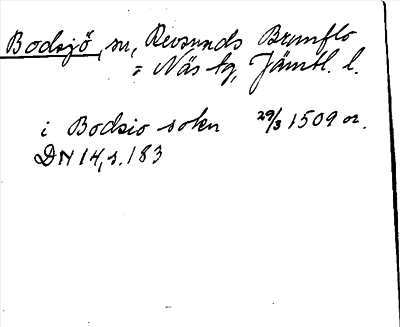 Bodsjö, sn, Revsunds Brunflo
o Näs tg, Jämtl. l.
i Bodsio sokn 29/3 1509 or.
DN 14, s. 183